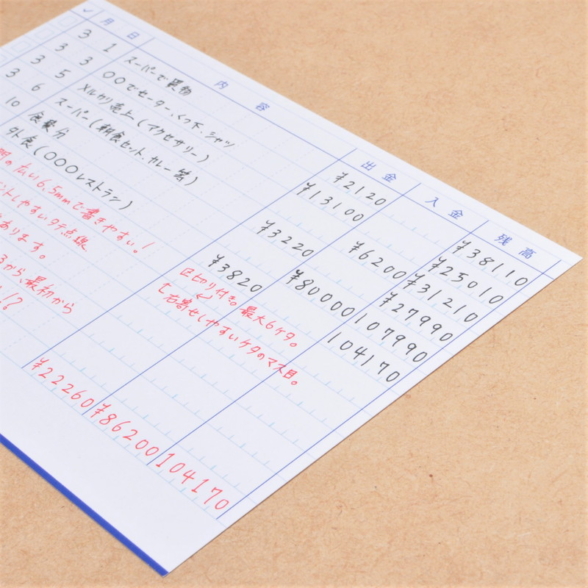 ✓ 月 日 内容 出金 入金 残高
3 1 スーパーで買物 ¥2120 ¥38110
3 3 〇〇でセーター、くつ下、シャツ ¥13100 ¥25010
3 5 メルカリ売上(アクセサリー) ¥6200 ¥31210
3 6 スーパー(朝食セット、カレー 等) ¥3220 ¥27990
10 食費分 ¥80000 107990
外食(〇〇〇レストラン) ¥3820 104170
の広い6.5mmで書きやすい!
ントしやすいタテ点線
あります。
から、最初から
区切り付き。最大6ケタ。
しやすいケタのマス目。
¥22260 ¥86200 104170